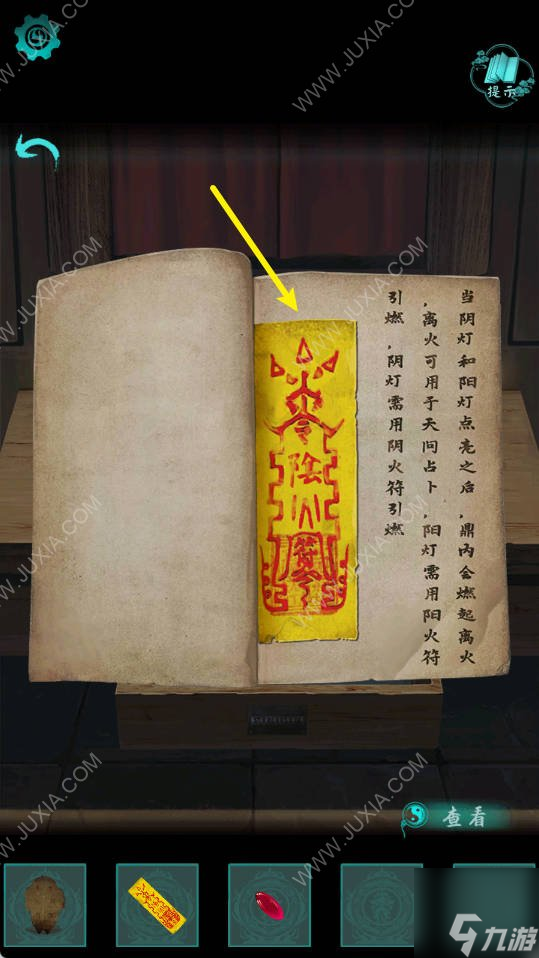 提示
当阴灯和阳灯点亮之后，鼎内会燃起离火
，离火可用于天问占卜，阳灯需用阳火符
引燃，阴灯需用阴火符引燃
陰火
符
查看
九游
WWW.JUXIA.COM